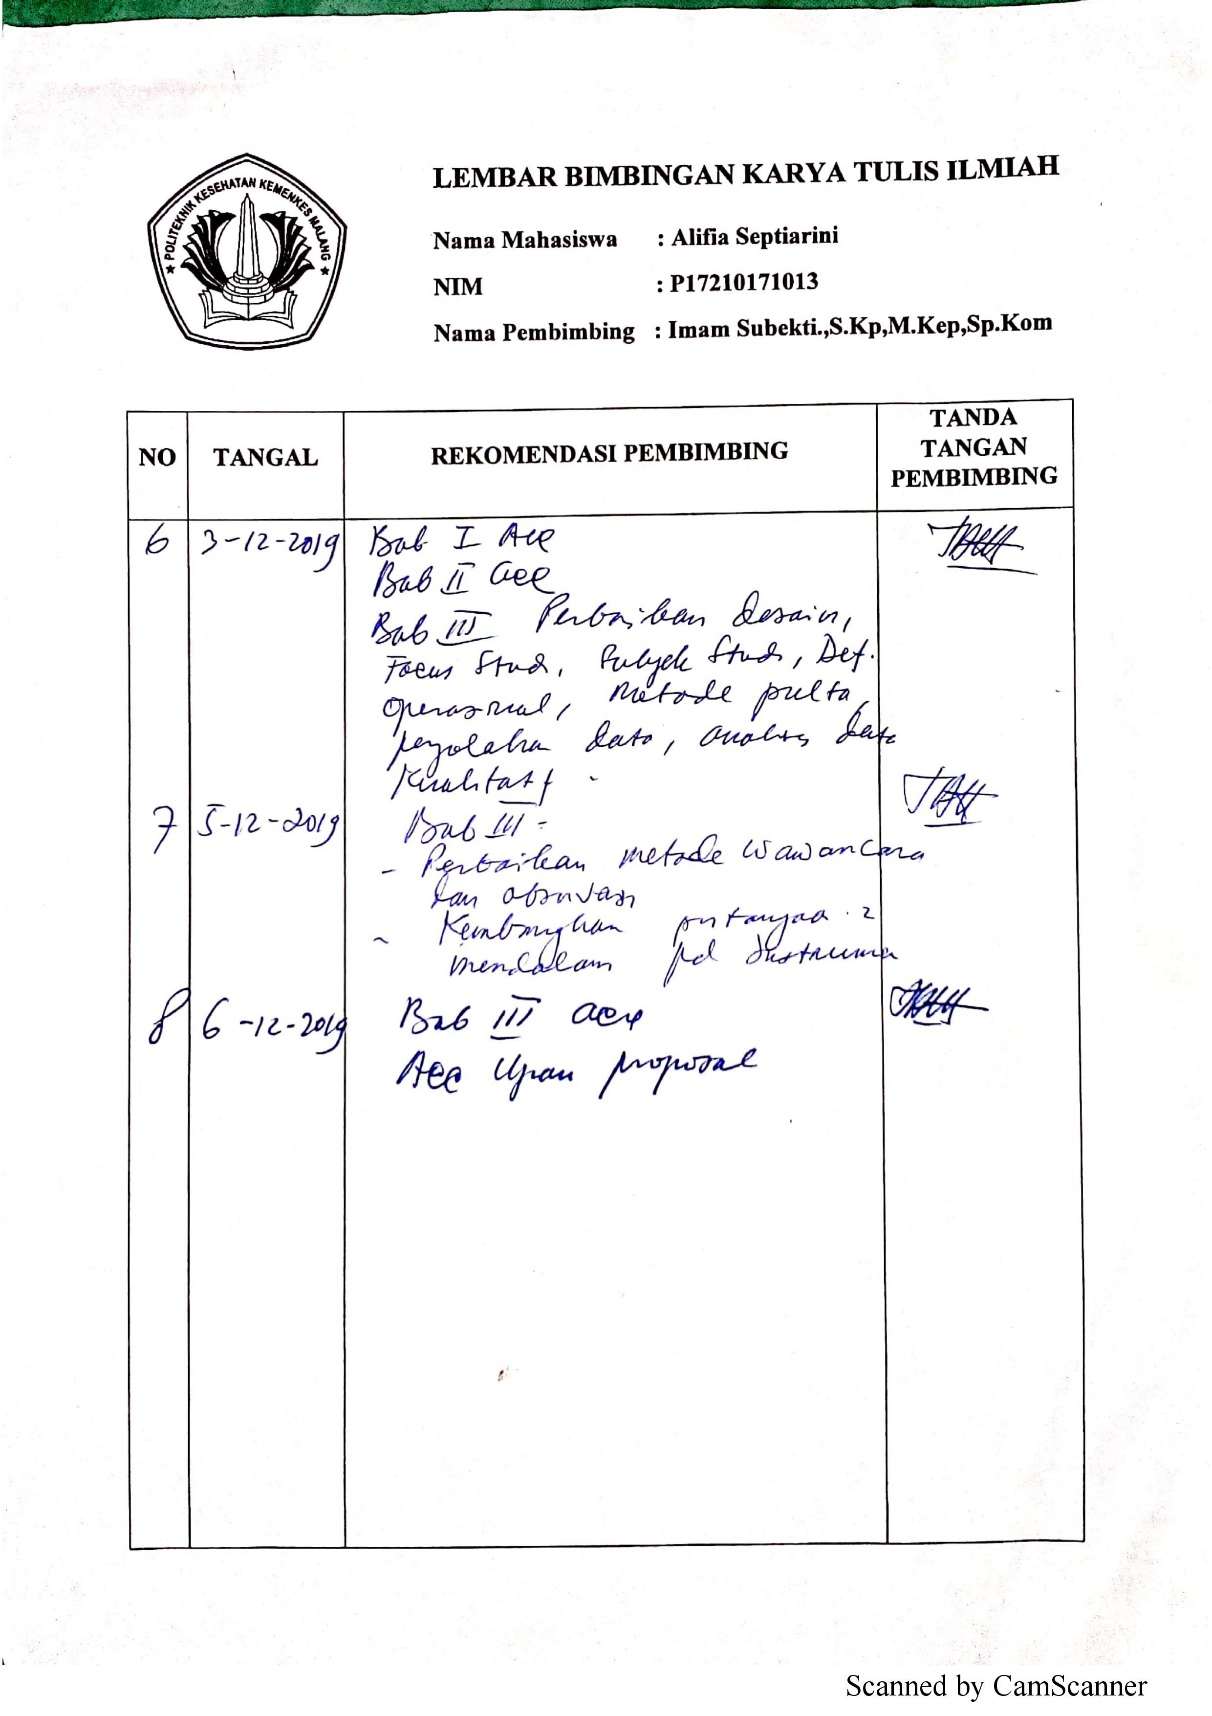 POLITEKNIK KESEHATAN KEMENKES MALANG
LEMBAR BIMBINGAN KARYA TULIS ILMIAH
Nama Mahasiswa : Alifia Septiarini
NIM : P17210171013
Nama Pembimbing : Imam Subekti.,S.Kp,M.Kep,Sp.Kom
NO TANGAL REKOMENDASI PEMBIMBING TANDA TANGAN PEMBIMBING
6 3-12-2019 Bab I Acc
Bab II acc
Bab III Perbaikan desain,
Focus Stud, Subyek Stud, Def.
Operasional, Metode pulta,
pengolahan data, analisis data
Kualitatif
7 5-12-2019 Bab III :
- Perbaikan metode wawancara
dan observasi
- Kembangkan pertanyaan 2
mendalam pd Instrumen
8 6-12-2019 Bab III acc
Acc Ujian proposal
Scanned by CamScanner